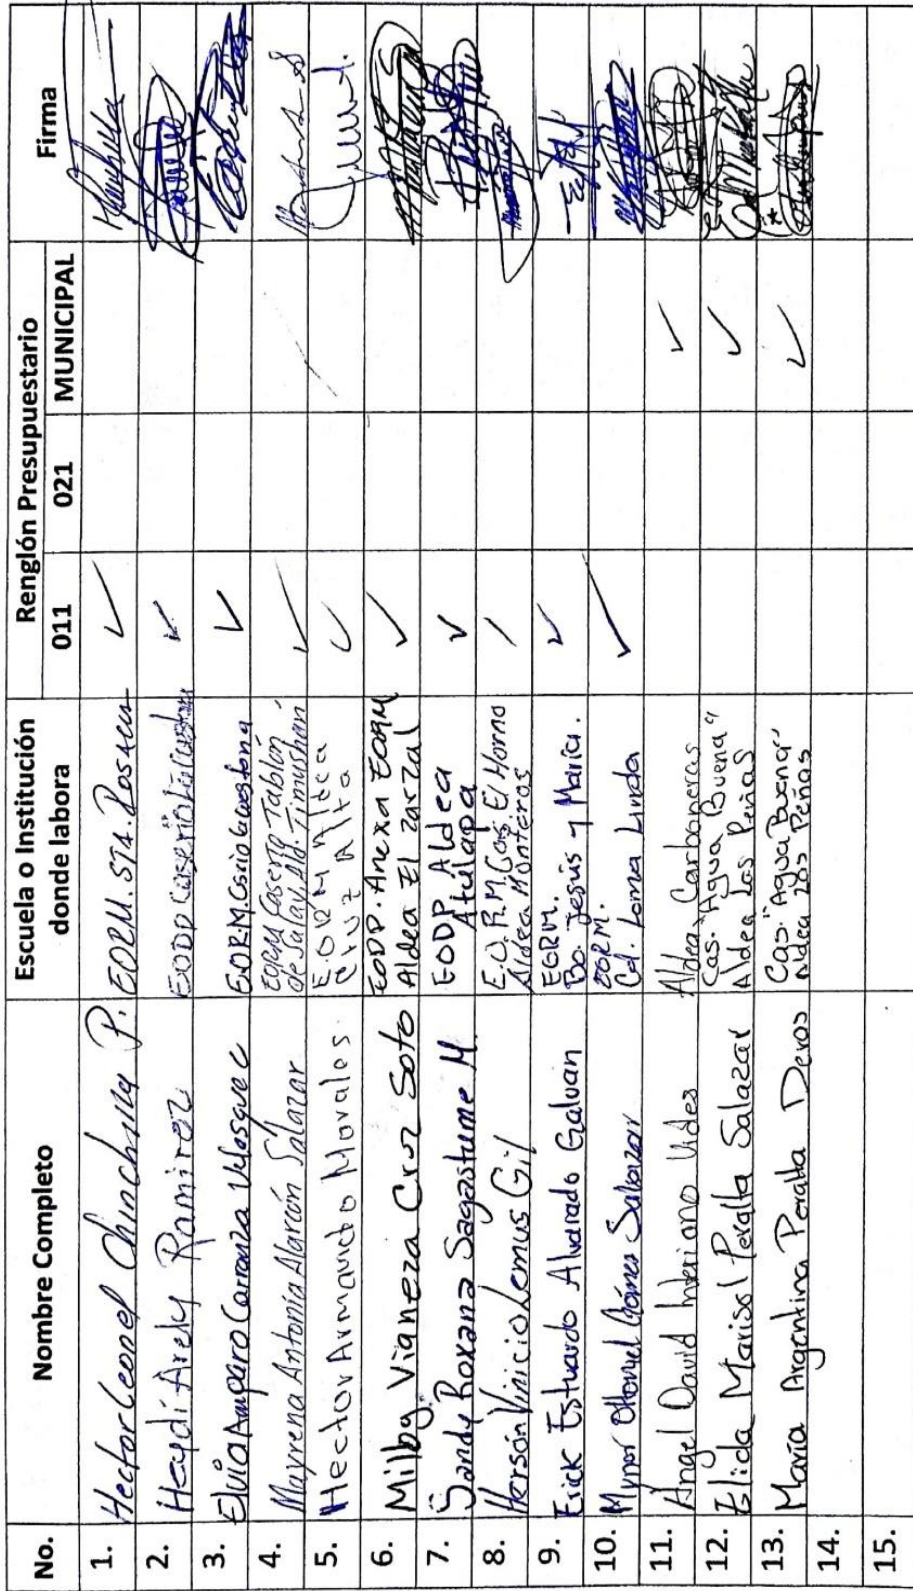 No. Nombre Completo Escuela o Institución donde labora Renglón Presupuestario Firma
011 021 MUNICIPAL
1. Hector Leonel Chinchilla P. EORM. STA. Rosalia
2. Haydi Arely Ramirez EODP Caserio
3. Elvia Amparo Carranza Velasquez C EORM. Caserio
4. Mayrena Antonia Alarcón Salazar EORM Caserio Tablón
de Sulay, Ald. Timushán
5. Hector Armando Morales. E.O.R.M Aldea
Cruz Alta
6. Milby Vianeza Cruz Soto EODP. Anexa EORM
Aldea El Zarzal
7. Sandy Roxana Sagastume M. EODP Aldea
Atulapa
8. Herson Vinicio Lemus Gil E.O.R.M. Cas. El Horno
Aldea Monteros
9. Erick Estuardo Alvarado Galvan EORM.
Bo. Jesús y María.
10. Mynor Othoniel Gómez Salazar EORM.
Col. Loma Linda
11. Angel David Interiano Videz Aldea Carboneras
12. Elida Marisol Peralta Salazar Cas. "Agua Buena"
Aldea Las Peñas
13. María Argentina Peralta Deras Cas. "Agua Buena"
Aldea Las Peñas
14.
15.